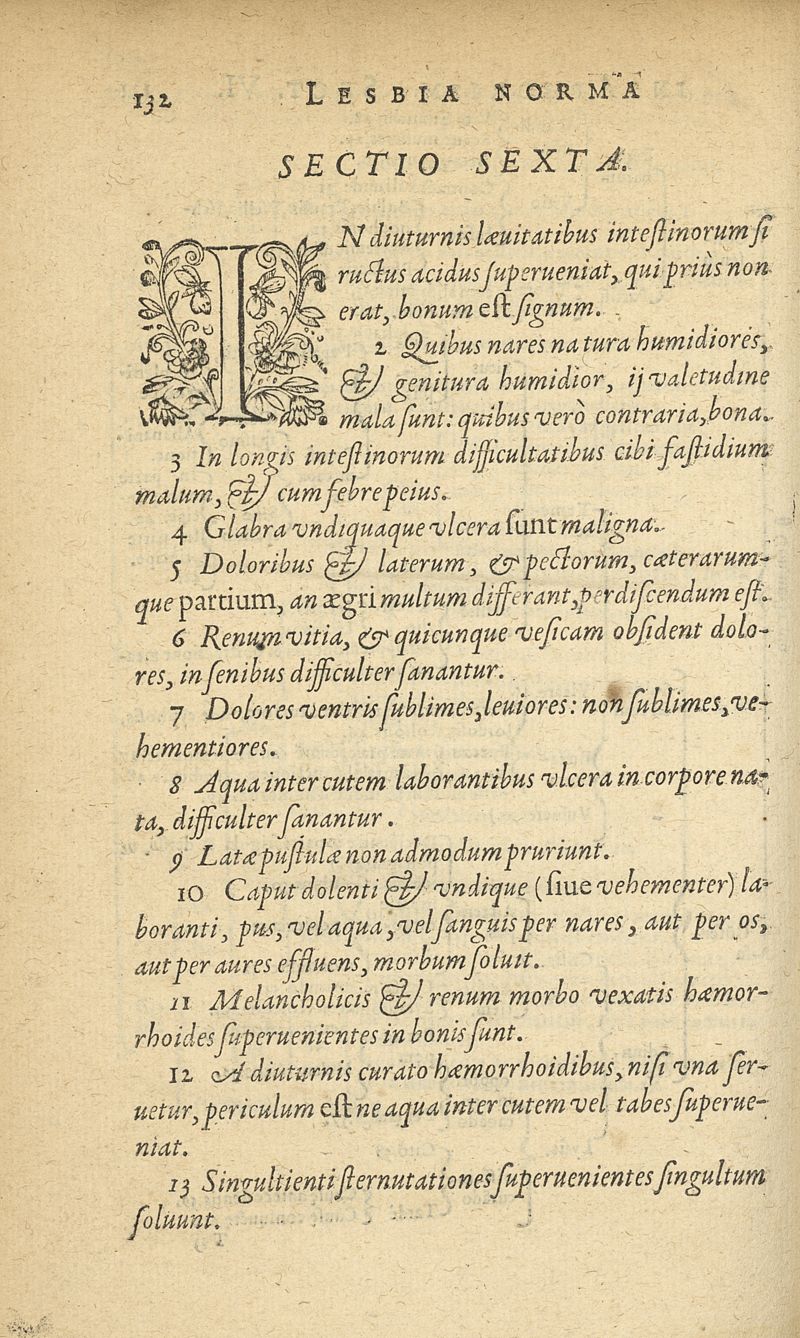 132 LESBIA NORMA
SECTIO SEXTA.
IN diuturnis læuitatibus inteſtinorum ſi
ructus acidus ſuperueniat, qui priùs non
erat, bonum eſt ſignum.
2 Quibus nares natura humidiores,
& genitura humidior, ij valetudine
mala ſunt: quibus verò contraria, bona.
3 In longis inteſtinorum difficultatibus cibi faſtidium
malum, & cum febre peius.
4 Glabra vndiquaque vlcera ſunt maligna.
5 Doloribus & laterum, & pectorum, cæterarum-
que partium, an ægri multum differant, perdiſcendum eſt.
6 Renum vitia, & quicunque veſicam obſident dolo-
res, in ſenibus difficulter ſanantur.
7 Dolores ventris ſublimes, leuiores: non ſublimes, ve-
hementiores.
8 Aqua inter cutem laborantibus vlcera in corpore na-
ta, difficulter ſanantur.
9 Latæ puſtulæ non admodum pruriunt.
10 Caput dolenti & vndique (ſiue vehementer) la-
boranti, pus, vel aqua, vel ſanguis per nares, aut per os,
aut per aures effluens, morbum ſoluit.
11 Melancholicis & renum morbo vexatis hæmor-
rhoides ſuperuenientes in bonis ſunt.
12 A diuturnis curato hæmorrhoidibus, niſi vna ſer-
uetur, periculum eſt ne aqua inter cutem vel tabes ſuperue-
niat.
13 Singultienti ſternutationes ſuperuenientes ſingultum
ſoluunt.